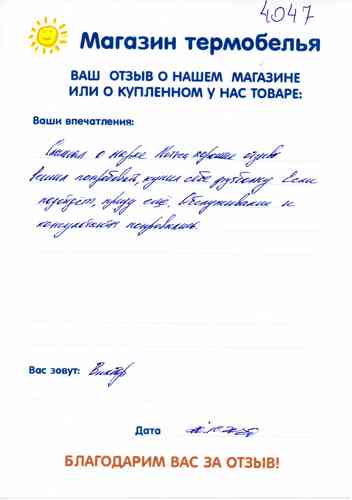 4047
Магазин термобелья
ВАШ ОТЗЫВ О НАШЕМ МАГАЗИНЕ
ИЛИ О КУПЛЕННОМ У НАС ТОВАРЕ:
Ваши впечатления:
о марке хорошие
Решил попробовать, купил себе футболку. Если
подойдёт, приду ещё. Обслуживание и
консультанты понравились.
Вас зовут: Виктор
Дата
БЛАГОДАРИМ ВАС ЗА ОТЗЫВ!